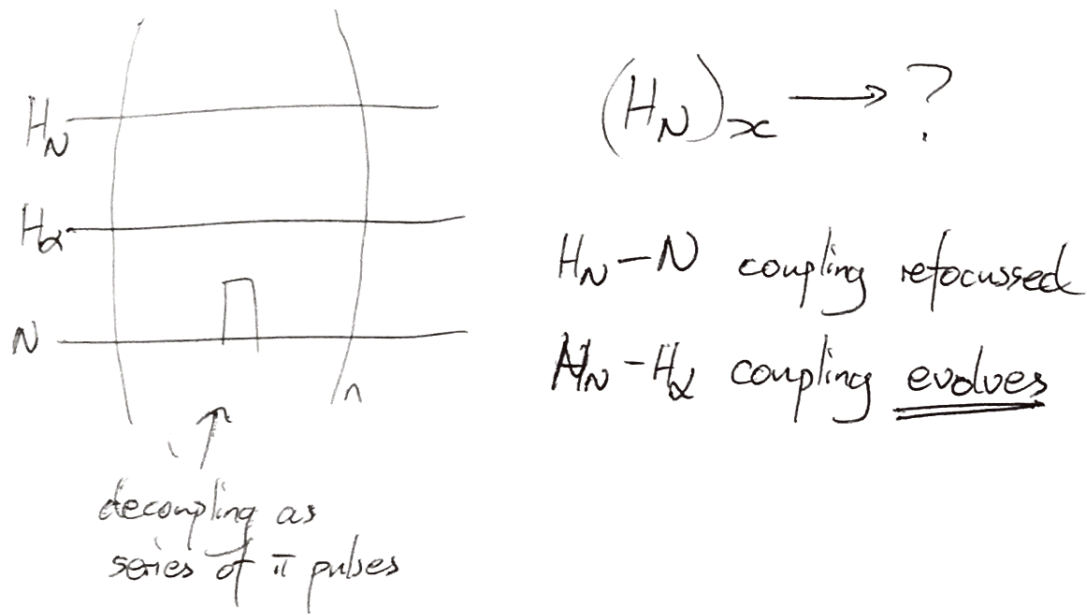 H_N
H_α
N
n
decoupling as
series of π pulses
(H_N)_x → ?
H_N - N coupling refocussed
H_N - H_α coupling evolves